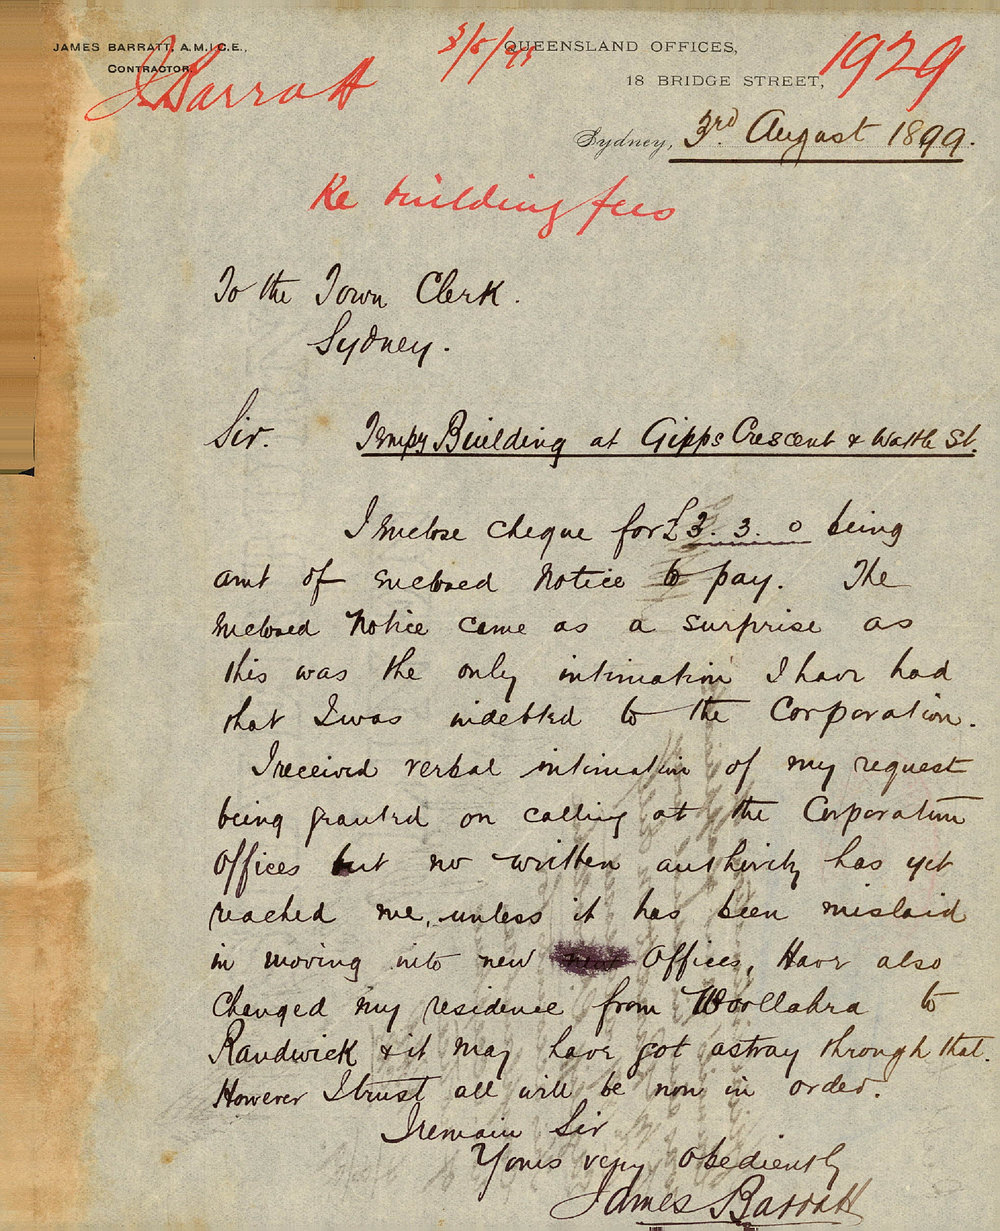 JAMES BARRATT, A.M.I.C.E.,
CONTRACTOR.
J Barratt
3/8/99
QUEENSLAND OFFICES,
18 BRIDGE STREET,
1929
Sydney, 3rd. August 1899.
Re building fees
To the Town Clerk.
Sydney.
Sir. Tempy Building at Gipps Crescent & Wattle St.
I enclose cheque for £3. 3. 0 being
amt of enclosed notice to pay. The
enclosed notice came as a surprise as
this was the only intimation I have had
that I was indebted to the Corporation.
I received verbal intimation of my request
being granted on calling at the Corporation
Offices but no written authority has yet
reached me, unless it has been mislaid
in moving into new Offices, Have also
changed my residence from Woollahra to
Randwick & it may have got astray through that.
However I trust all will be now in order.
I remain Sir
Yours very obediently
James Barratt